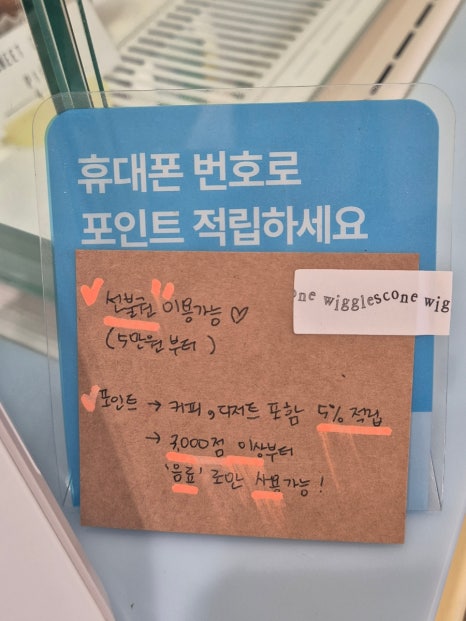 휴대폰 번호로
포인트 적립하세요
one wigglescone wig
✓ 선불권" 이용가능 ♡
(5만원부터)
✓ 포인트 → 커피, 디저트 포함 5% 적립
→ 3,000점 이상부터
'음료'로만 사용가능!